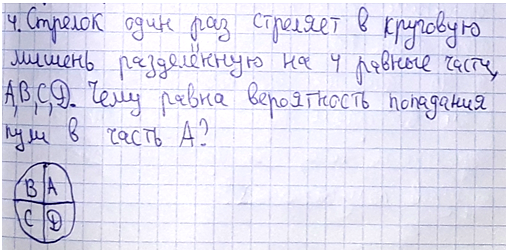 4. Стрелок один раз стреляет в круговую
мишень разделённую на 4 равные части,
A,B,C,D. Чему равна вероятность попадания
пули в часть А?
B A
C D